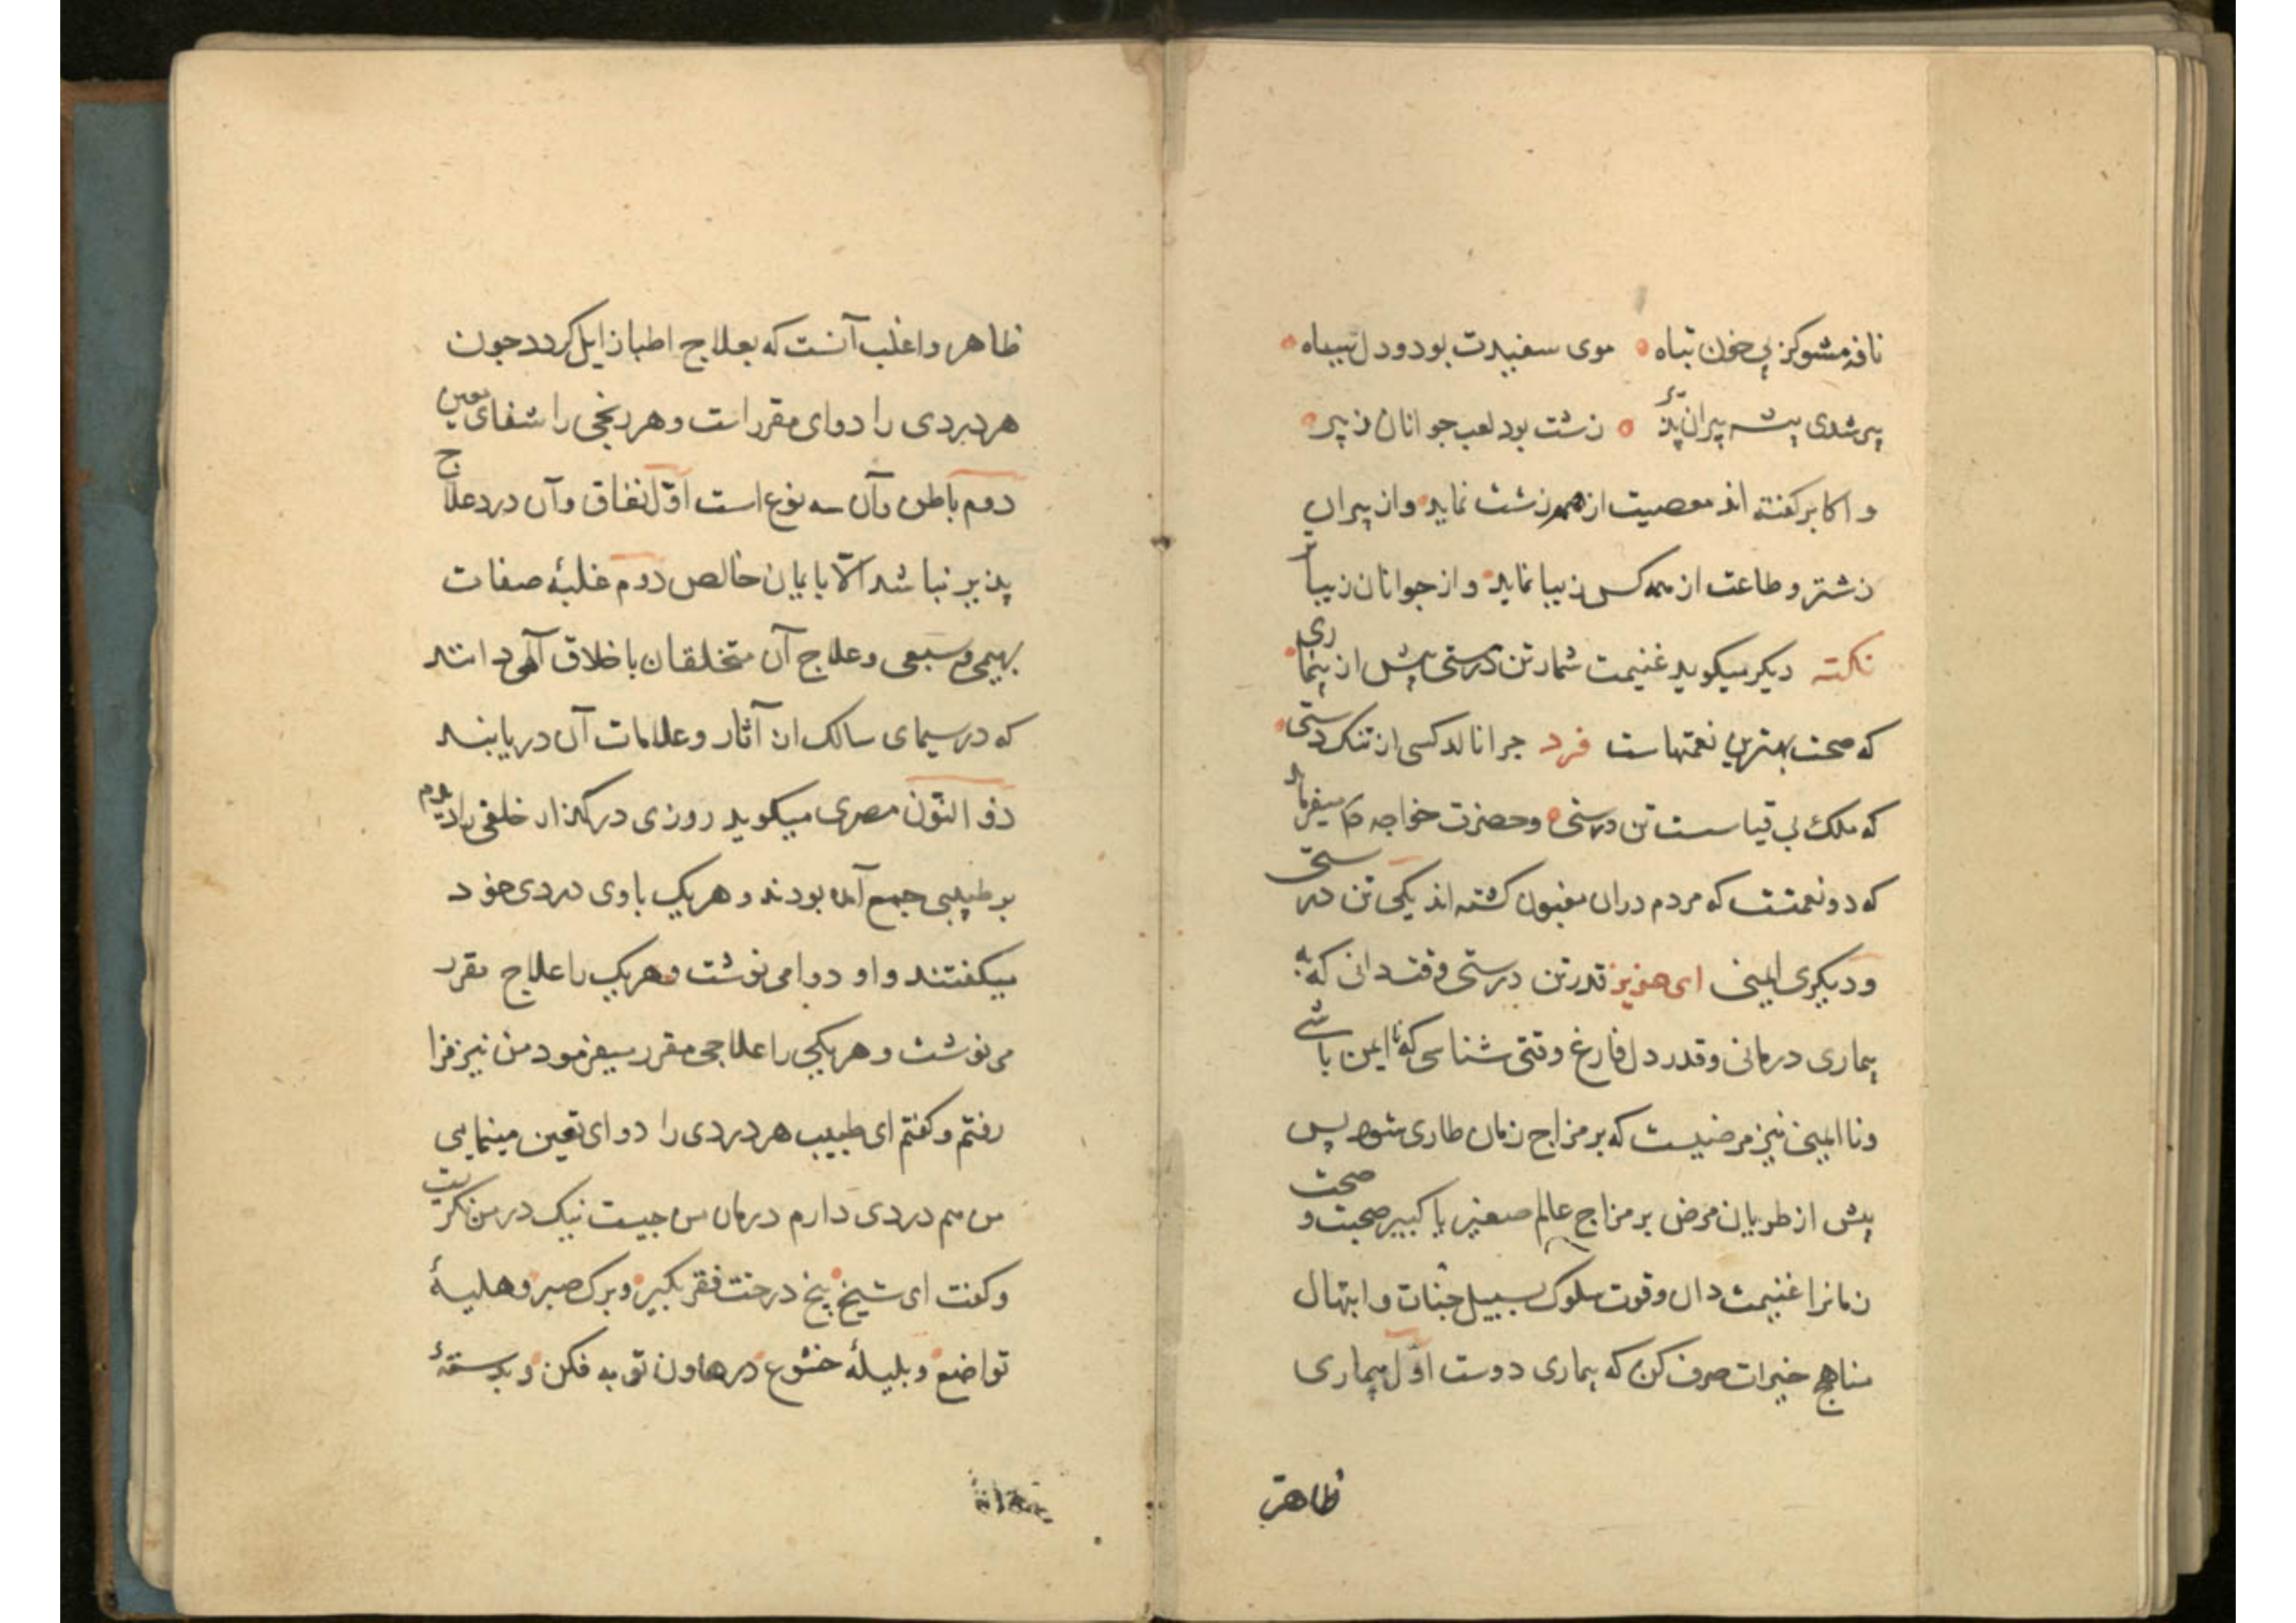 نافه مشو کز پی خون تباه موی سفیدت بود و دل سیاه
پیر شدی پیشه پیران پذیر زشت بود لعب جوانان ز پیر
و اکابر گفته اند معصیت از همه زشت نماید و از پیران
زشتر و طاعت از همه کس زیبا نماید و از جوانان زیباتر
نکته دیکر میکوید غنیمت شمار تن درستی پیش از بیماری
که صحت بهترین نعمتهاست فرد جرا نالد کسی از تنک دستی
که ملک بی قیاسست تن درستی و حضرت خواجه میفرماید
که دو نعمتت که مردم دران مغبون کشته اند یکی تن درستی
و دیکری ایمنی ای عزیز قدر تن درستی وقتی دانی که به
بیماری درمانی و قدر دل فارغ وقتی شناسی که نا ایمن باشی
و نا ایمنی نیز مرضیست که بر مزاج زمان طاری شود پس
پیش از طریان مرض بر مزاج عالم صغیر یا کبیر صحبت و صحت
زمانرا غنیمت دان و قوت سلوک سبیل جنات و ابتهال
مناهج خیرات صرف کن که بیماری دوست اول بیماری
ظاهر
ظاهر و اغلب آنست که بعلاج اطبا زایل کردد جون
هر دردی را دوای مقرر است و هر رنجی را شفای معین
دوم باطن و آن سه نوع است اول نفاق و آن درد علاج
پذیر نباشد الا بایمان خالص دوم غلبهٔ صفات
بهیمی و سبعی و علاج آن متخلقان باخلاق آلهی دانند
که در سیمای سالک ان آثار و علامات آن دریابند
ذو النون مصری میکوید روزی در کذار خلقی را دیدم
بر طبیبی جمع آمده بودند و هریک با وی دردی خود
میکفتند و او دوا می نوشت و هریک را علاج مقرر
می نوشت و هریکی را علاجی مقرر میفرمود من نیز فرا
رفتم و کفتم ای طبیب هر دردی را دوای تعین مینمایی
من هم دردی دارم درمان من جیست نیک در من نکریت
و کفت ای شیخ بیخ درخت فقر بکیر و برک صبر و هلیلهٔ
تواضع و بلیلهٔ خشوع در هاون توبه فکن و بدستهٔ